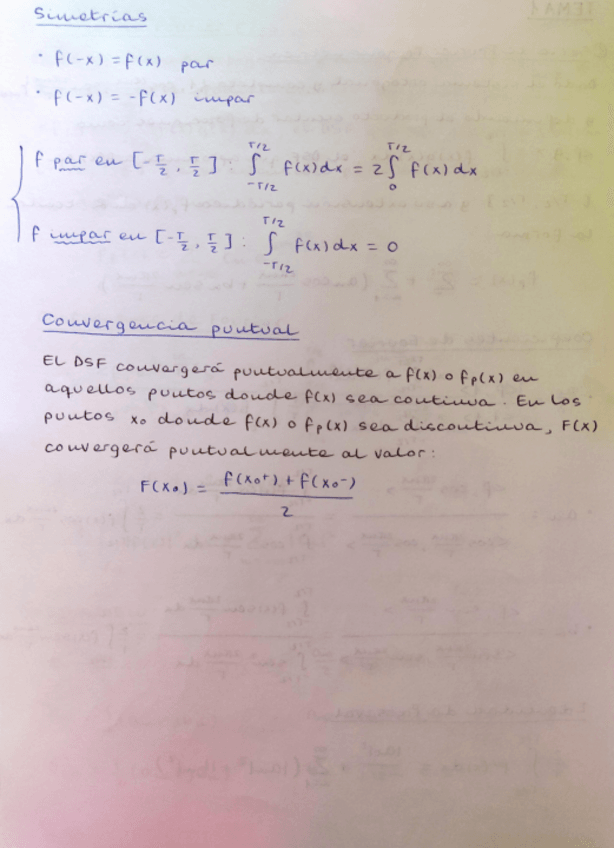 Simetrías
· f(-x) = f(x) par
· f(-x) = -f(x) impar
f par en [-T/2, T/2]: ∫_{-T/2}^{T/2} f(x)dx = 2∫_0^{T/2} f(x)dx
f impar en [-T/2, T/2]: ∫_{-T/2}^{T/2} f(x)dx = 0
Convergencia puntual
El DSF convergerá puntualmente a f(x) o fp(x) en
aquellos puntos donde f(x) sea continua. En los
puntos x₀ donde f(x) o fp(x) sea discontinua, F(x)
convergerá puntualmente al valor:
F(x₀) = (f(x₀⁺) + f(x₀⁻))/2